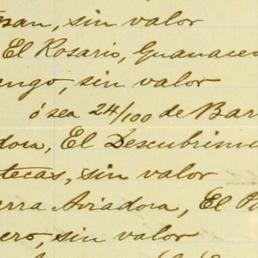 san, sin valor
El Rosario, Guanacev
ngo, sin valor
ó sea 24/100 de Bar
dora, El Descubrim
tecas, sin valor
erra Aviadora, El P
ero, sin valor